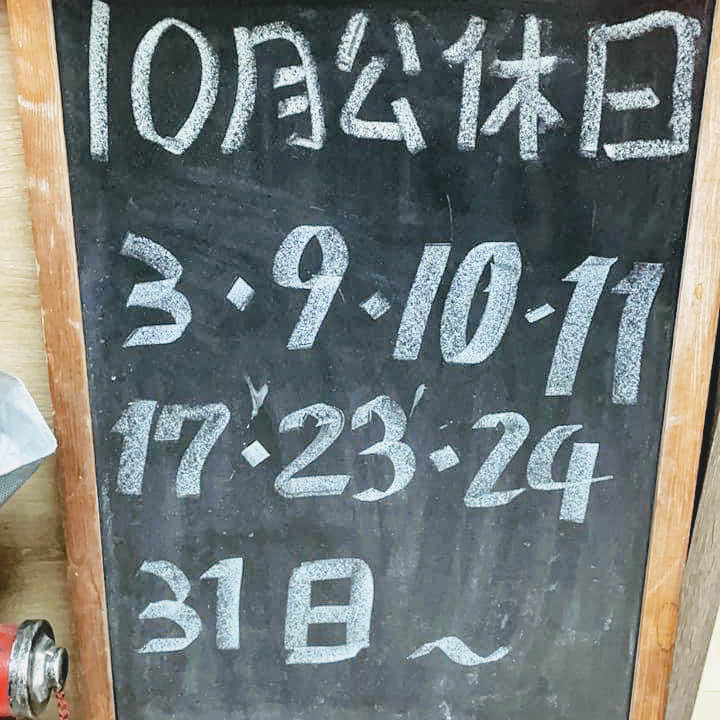 10月公休日
3·9·10·11
17·23·24
31日~